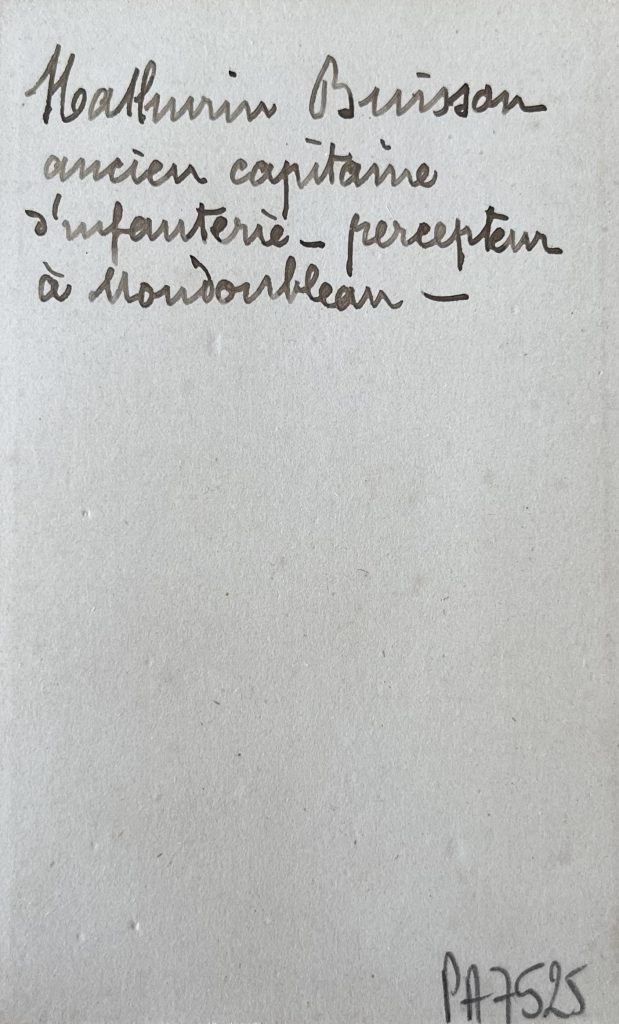 Mathurin Buisson
ancien capitaine
d'infanterie – percepteur
à Mondoubleau –
PA7525